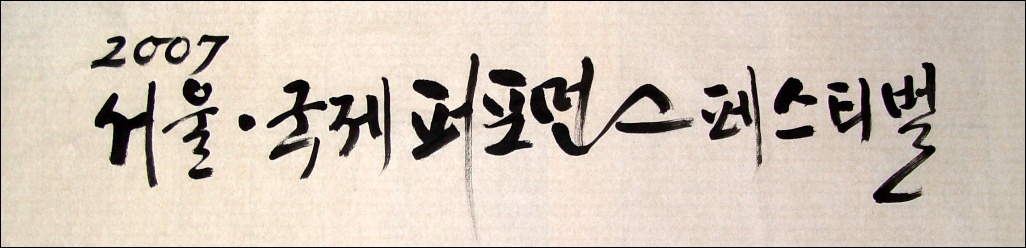 2007
서울·국제퍼포먼스페스티벌